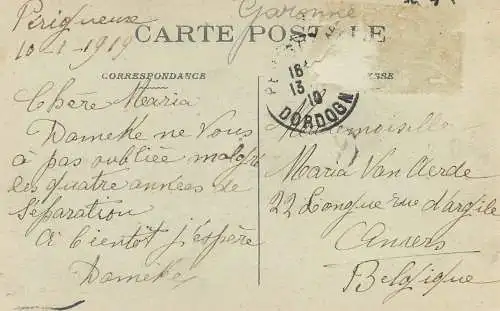 Garonne
Périgueux
10-1-1919
CARTE POSTALE
CORRESPONDANCE
ESSE
18
13
19
DORDOGN
Chère Maria
Dameke ne Vous
a pas oubliée malgré
les quatre années de
Séparation
a bientôt j'espère
Dameke
Mademoiselle
Maria Van Aerde
22 Longue rue d'argile
Anvers
Belgique